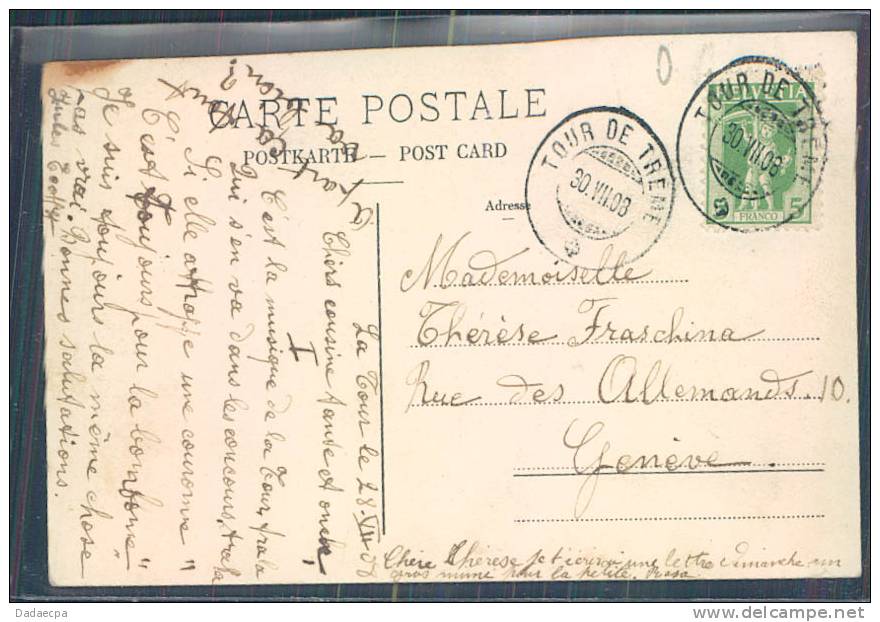 CARTE POSTALE
POSTKARTE — POST CARD
Adresse
TOUR DE TREME
30.VII.08
TOUR DE TREME
30.VII.08
HELVETIA
FRANCO 5
Mademoiselle
Thérèse Fraschina
Rue des Allemands. 10.
Genève.
La Tour le 28 VII 08
Chers cousine tante et oncle,
I
C'est la musique de la Tour, trala
Qui s'en va dans les concours, trala
Si elle attrape une couronne"
C'est toujours pour la bonbonne"
Je suis toujours la même chose
pas vrai. Bonnes salutations.
Jules
Chère Thérèse je t'écrirai une lettre dimanche un
gros mimi pour la petite. Rosa
Dadaecpa
delcampe.net